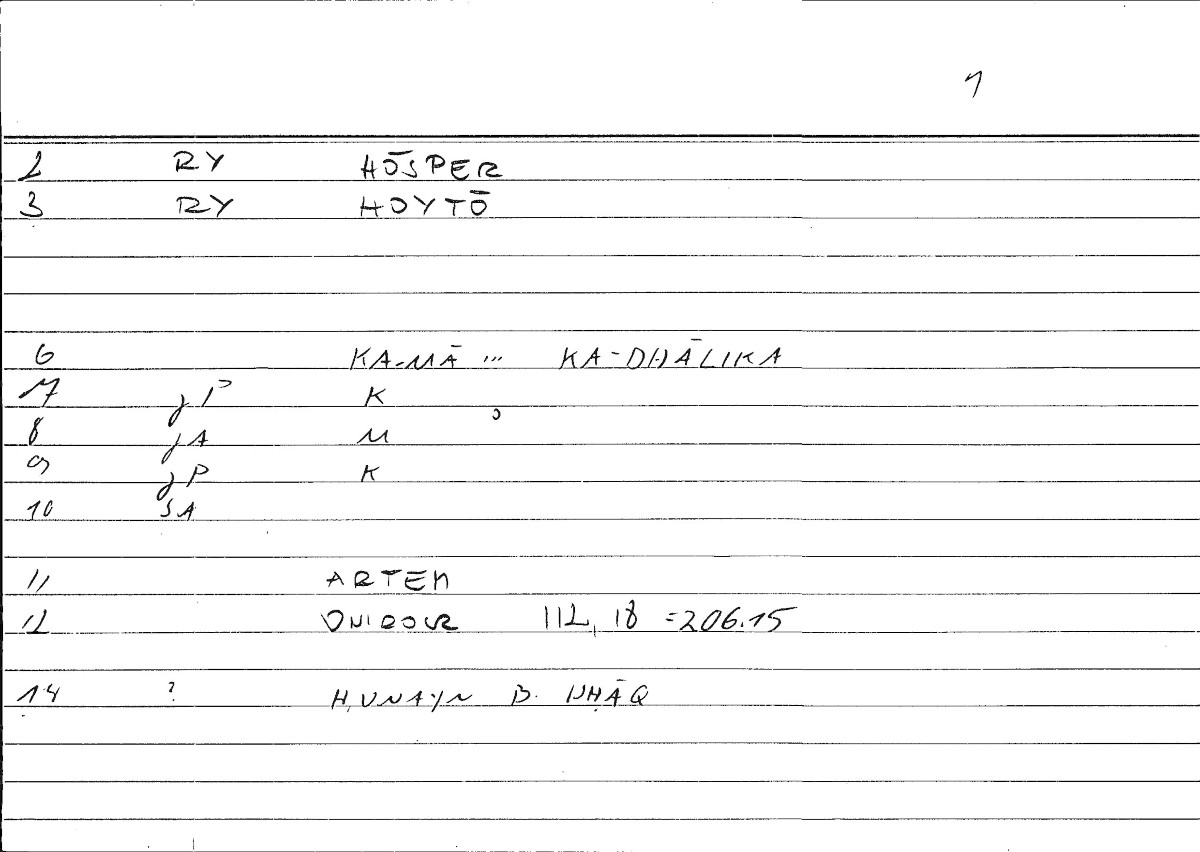 1
2 RY HŌSPER
3 RY HOYTŌ
6 KA-MĀ ... KA-DHĀLIKA
7 jP K
8 jA M
9 jP K
10 SA
11 ARTEM
12 ONIROCR 112,18 =206.15
14 ? ḤUNAYN B. ISḤĀQ